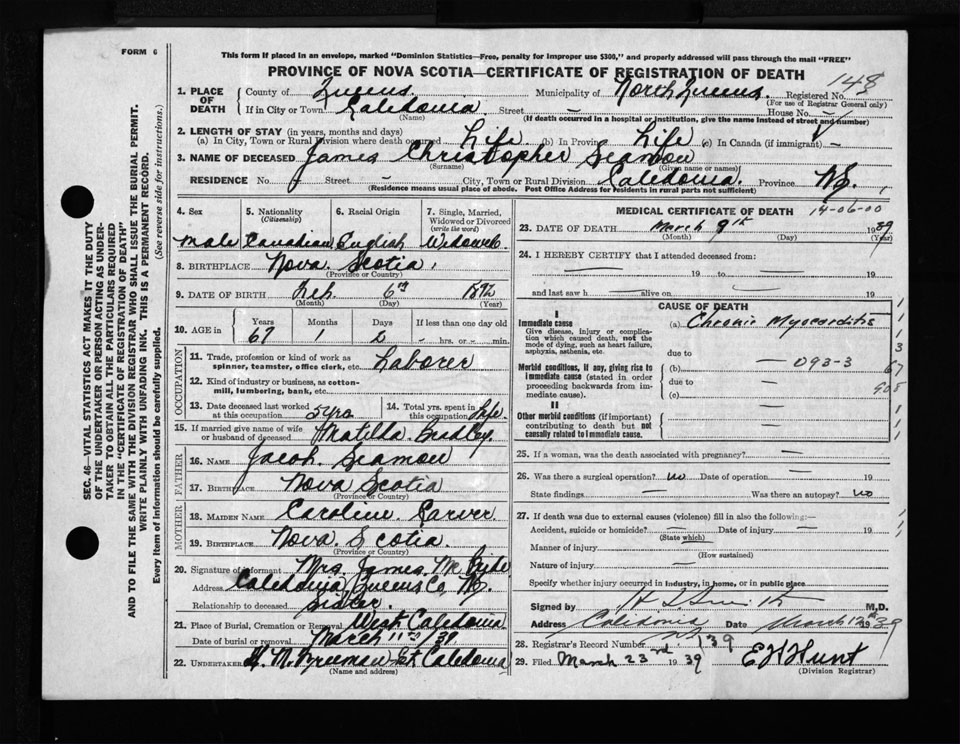 FORM 6
This form if placed in an envelope, marked "Dominion Statistics—Free, penalty for improper use $300," and properly addressed will pass through the mail "FREE"
PROVINCE OF NOVA SCOTIA—CERTIFICATE OF REGISTRATION OF DEATH
148
1. PLACE OF DEATH
County of Queens. Municipality of North Queens. Registered No.
(For use of Registrar General only)
If in City or Town Caledonia Street — House No. —
(Name) (If death occurred in a hospital or institution, give the name instead of street and number)
2. LENGTH OF STAY (in years, months and days)
(a) In City, Town or Rural Division where death occurred Life (b) In Province Life (c) In Canada (if immigrant) —
3. NAME OF DECEASED James Christopher Seamon
(Surname) (Given name or names)
RESIDENCE No. Street — City, Town or Rural Division Caledonia. Province N.S.
(Residence means usual place of abode. Post Office Address for residents in rural parts not sufficient)
SEC. 46—VITAL STATISTICS ACT MAKES IT THE DUTY
OF THE UNDERTAKER OR PERSON ACTING AS UNDER-
TAKER TO OBTAIN ALL THE PARTICULARS REQUIRED
IN THE "CERTIFICATE OF REGISTRATION OF DEATH"
AND TO FILE THE SAME WITH THE DIVISION REGISTRAR WHO SHALL ISSUE THE BURIAL PERMIT.
WRITE PLAINLY WITH UNFADING INK. THIS IS A PERMANENT RECORD.
Every item of information should be carefully supplied. (See reverse side for instructions.)
4. Sex 5. Nationality 6. Racial Origin 7. Single, Married,
(Citizenship) Widowed or Divorced
(write the word)
Male Canadian English Widowed.
8. BIRTHPLACE Nova Scotia
(Province or Country)
9. DATE OF BIRTH Feb. 6th
(Month) (Day) (Year)
10. AGE in Years Months Days If less than one day old
67 1 hrs. or min.
OCCUPATION
11. Trade, profession or kind of work as
spinner, teamster, office clerk, etc. Laborer
12. Kind of industry or business, as cotton-
mill, lumbering, bank, etc.
13. Date deceased last worked at this occupation 5 yrs 14. Total yrs. spent in this occupation Life.
15. If married give name of wife
or husband of deceased Matilda Bradley.
FATHER
16. Name Jacob. Seamon
17. Birthplace Nova Scotia
(Province or Country)
MOTHER
18. MAIDEN NAME Caroline. Carver
19. Birthplace Nova. Scotia.
(Province or Country)
20. Signature of informant Mrs. James. Mc Bride
Address Caledonia Queens Co, N.S.
Relationship to deceased Sister.
21. Place of Burial, Cremation or Removal West Caledonia
Date of burial or removal March 11th/39.
22. UNDERTAKER Freeman Caledonia
(Name and address)
MEDICAL CERTIFICATE OF DEATH 14-06-00
23. DATE OF DEATH March 9th 1939
(Month) (Day) (Year)
24. I HEREBY CERTIFY that I attended deceased from:
— 19 to — 19
and last saw h alive on — 19
CAUSE OF DEATH
I
Immediate cause (a) Chronic Myocarditis
Give disease, injury or complica-
tion which caused death, not the
mode of dying, such as heart failure,
asphyxia, asthenia, etc.
due to
Morbid conditions, if any, giving rise to (b) — 093-3
immediate cause (stated in order due to —
proceeding backwards from im- (c) —
mediate cause).
II
Other morbid conditions (if important)
contributing to death but not
causally related to immediate cause.
1
1
3
67
908
25. If a woman, was the death associated with pregnancy? —
26. Was there a surgical operation? no Date of operation —
State findings — Was there an autopsy? no
27. If death was due to external causes (violence) fill in also the following:—
Accident, suicide or homicide? — Date of injury — 19
(State which)
Manner of injury
(How sustained)
Nature of injury —
Specify whether injury occurred in industry, in home, or in public place
Signed by H Smith M.D.
Address Caledonia NS Date March 1939
28. Registrar's Record Number
29. Filed March 23rd 1939 E H Hunt
(Division Registrar)